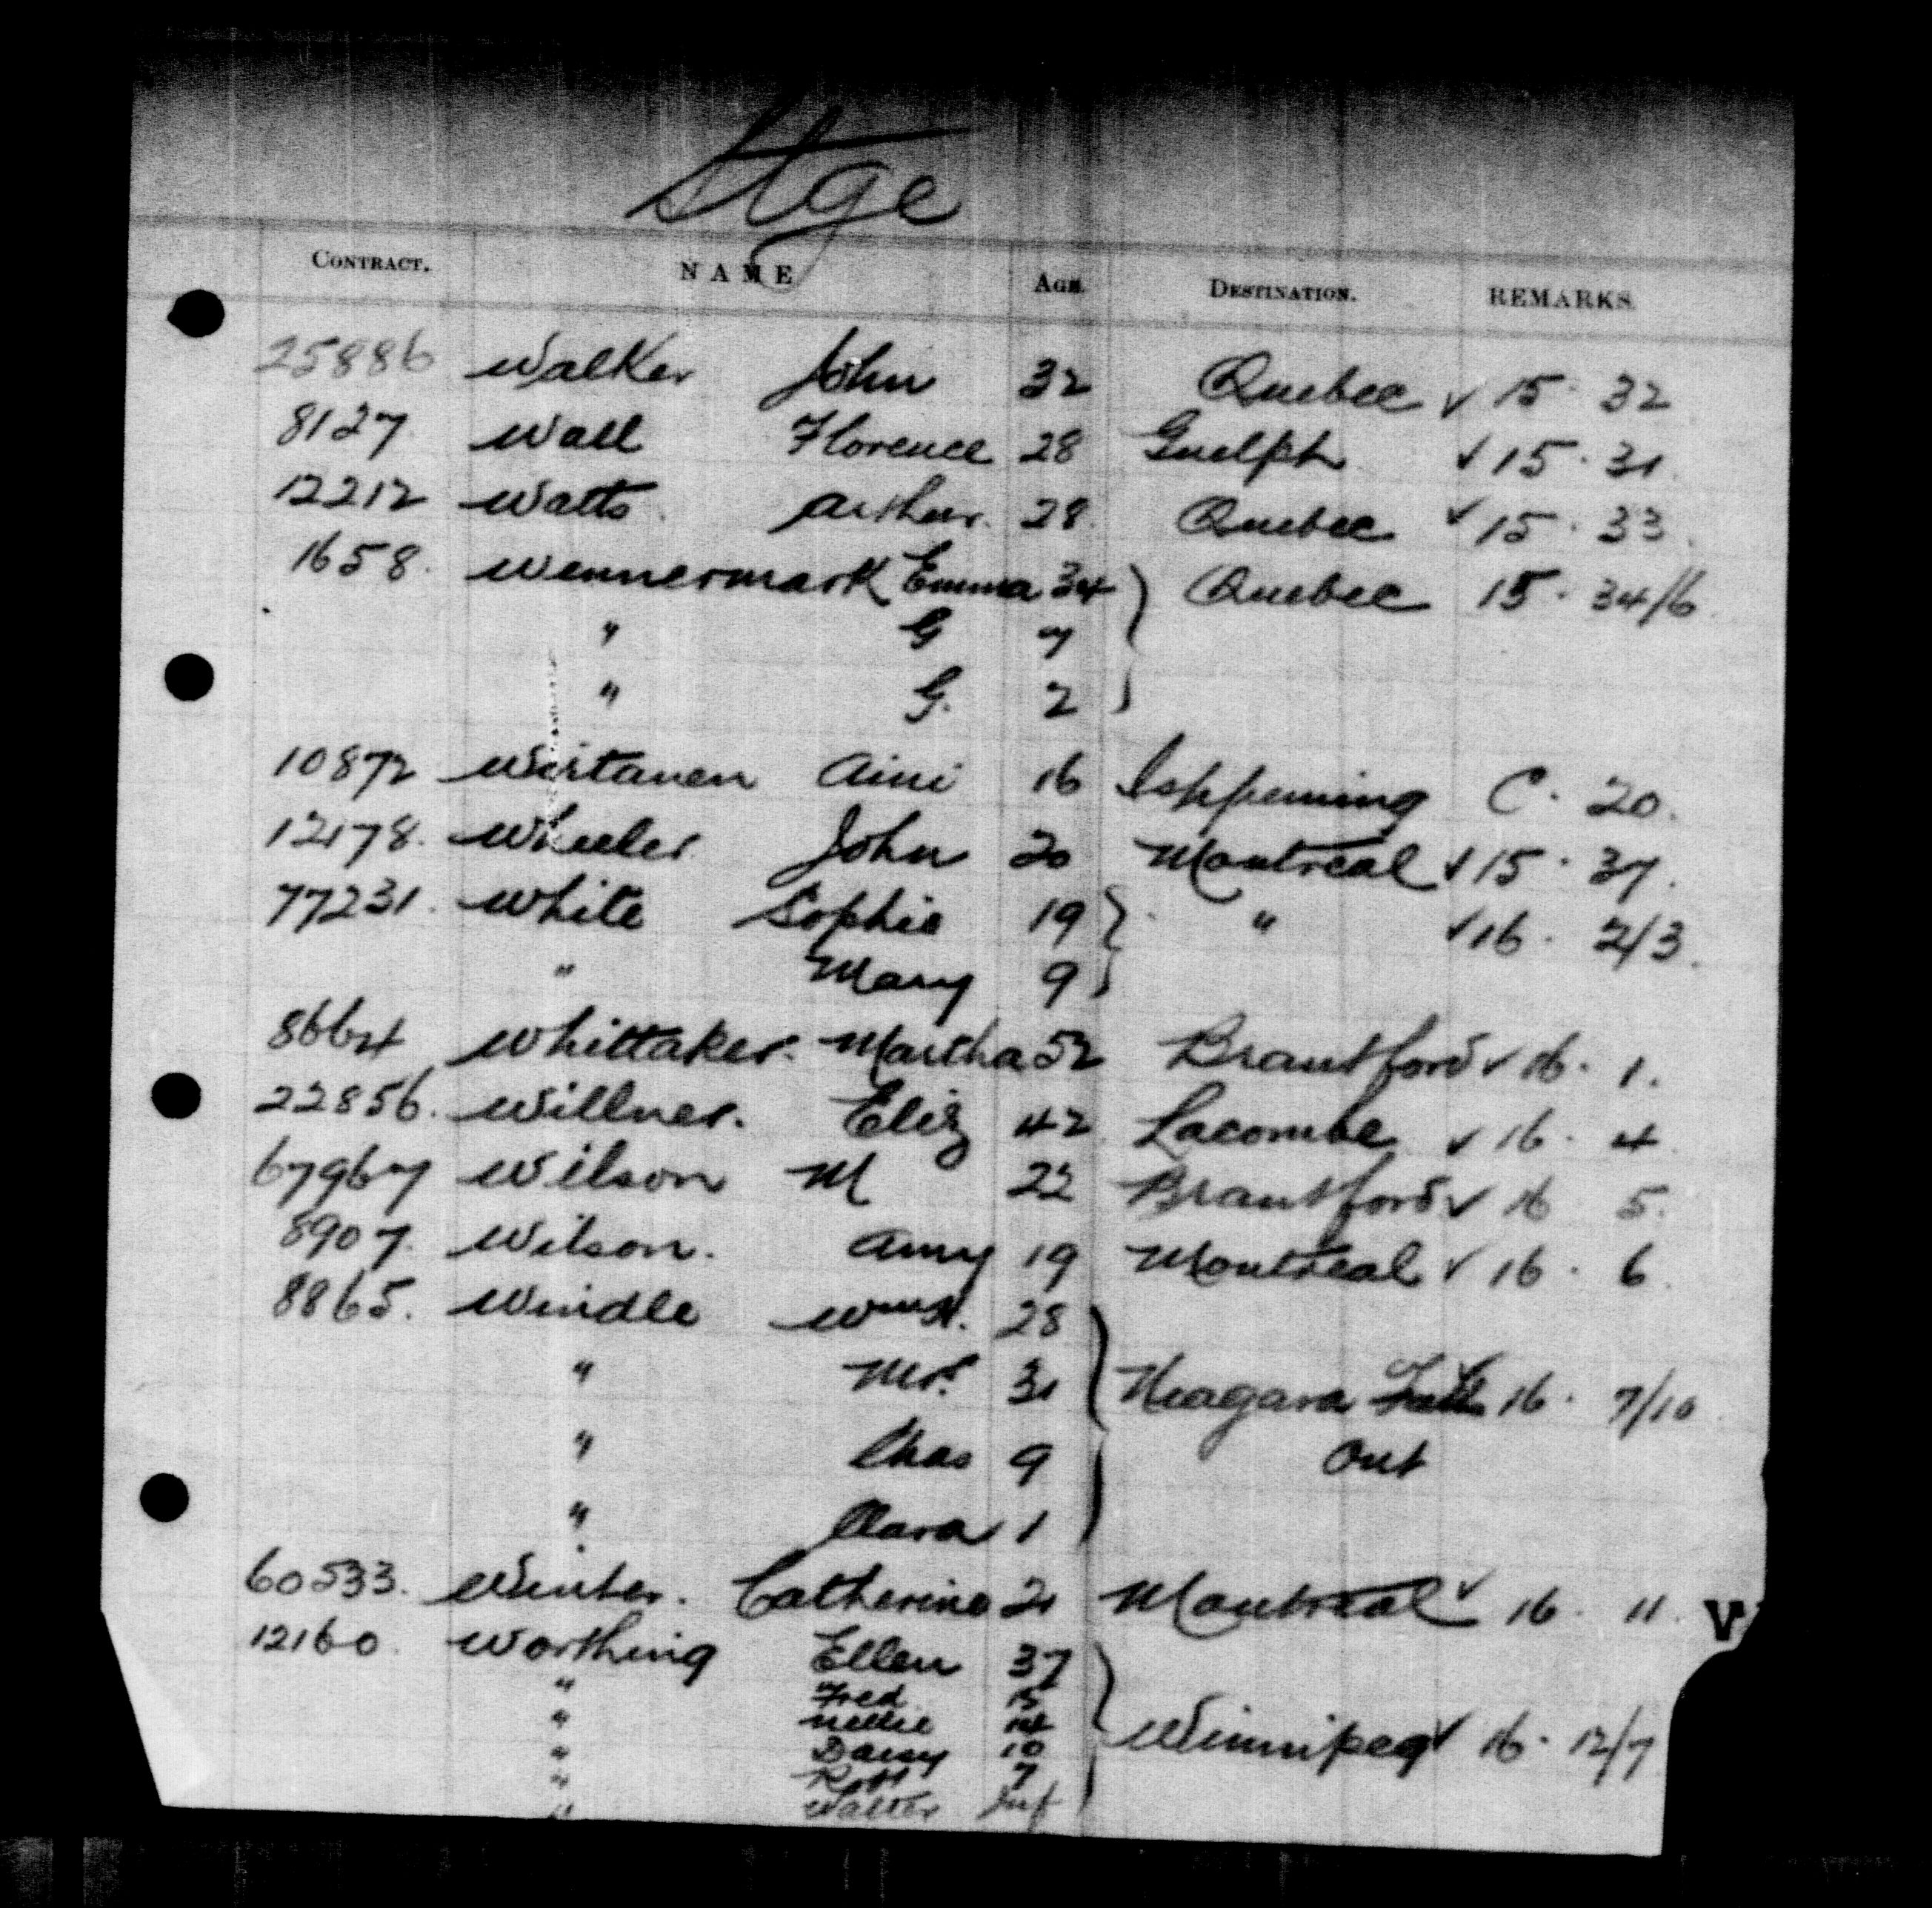 Stge
CONTRACT. NAME AGE DESTINATION. REMARKS.
25886 Walker John 32 Quebec ✓ 15 · 32
8127 Wall Florence 28 Guelph ✓ 15 · 31
12212 Watts Arthur. 28 Quebec ✓ 15 · 33
1658. Wennermark Emma 34 } Quebec 15 · 34/6
" G 7
" G. 2
10872 Wirtanen Aini 16 Ishpeming C · 20.
12178. Wheeler John 20 Montreal ✓ 15 · 37.
77231. White Sophie 19 } " ✓ 16 · 2/3.
" Mary 9
8664 Whittaker. Martha 52 Brantford ✓ 16 · 1.
22856. Willner. Eliz 42 Lacombe ✓ 16 · 4
67967 Wilson M 22 Brantford ✓ 16 5.
8907. Wilson. Amy 19 Montreal ✓ 16 · 6
8865. Windle Wm H. 28
" Mrs. 31 } Niagara Falls ✓ 16 · 7/10
" Chas 9 Ont
" Clara 1
60533. Winter. Catherine 21 Montreal ✓ 16 · 11. V
12160. Worthing Ellen 37
" Fred 15
" Nellie 14
" Daisy 10 } Winnipeg ✓ 16 · 12/7
" Robt 7
" Walter Inf